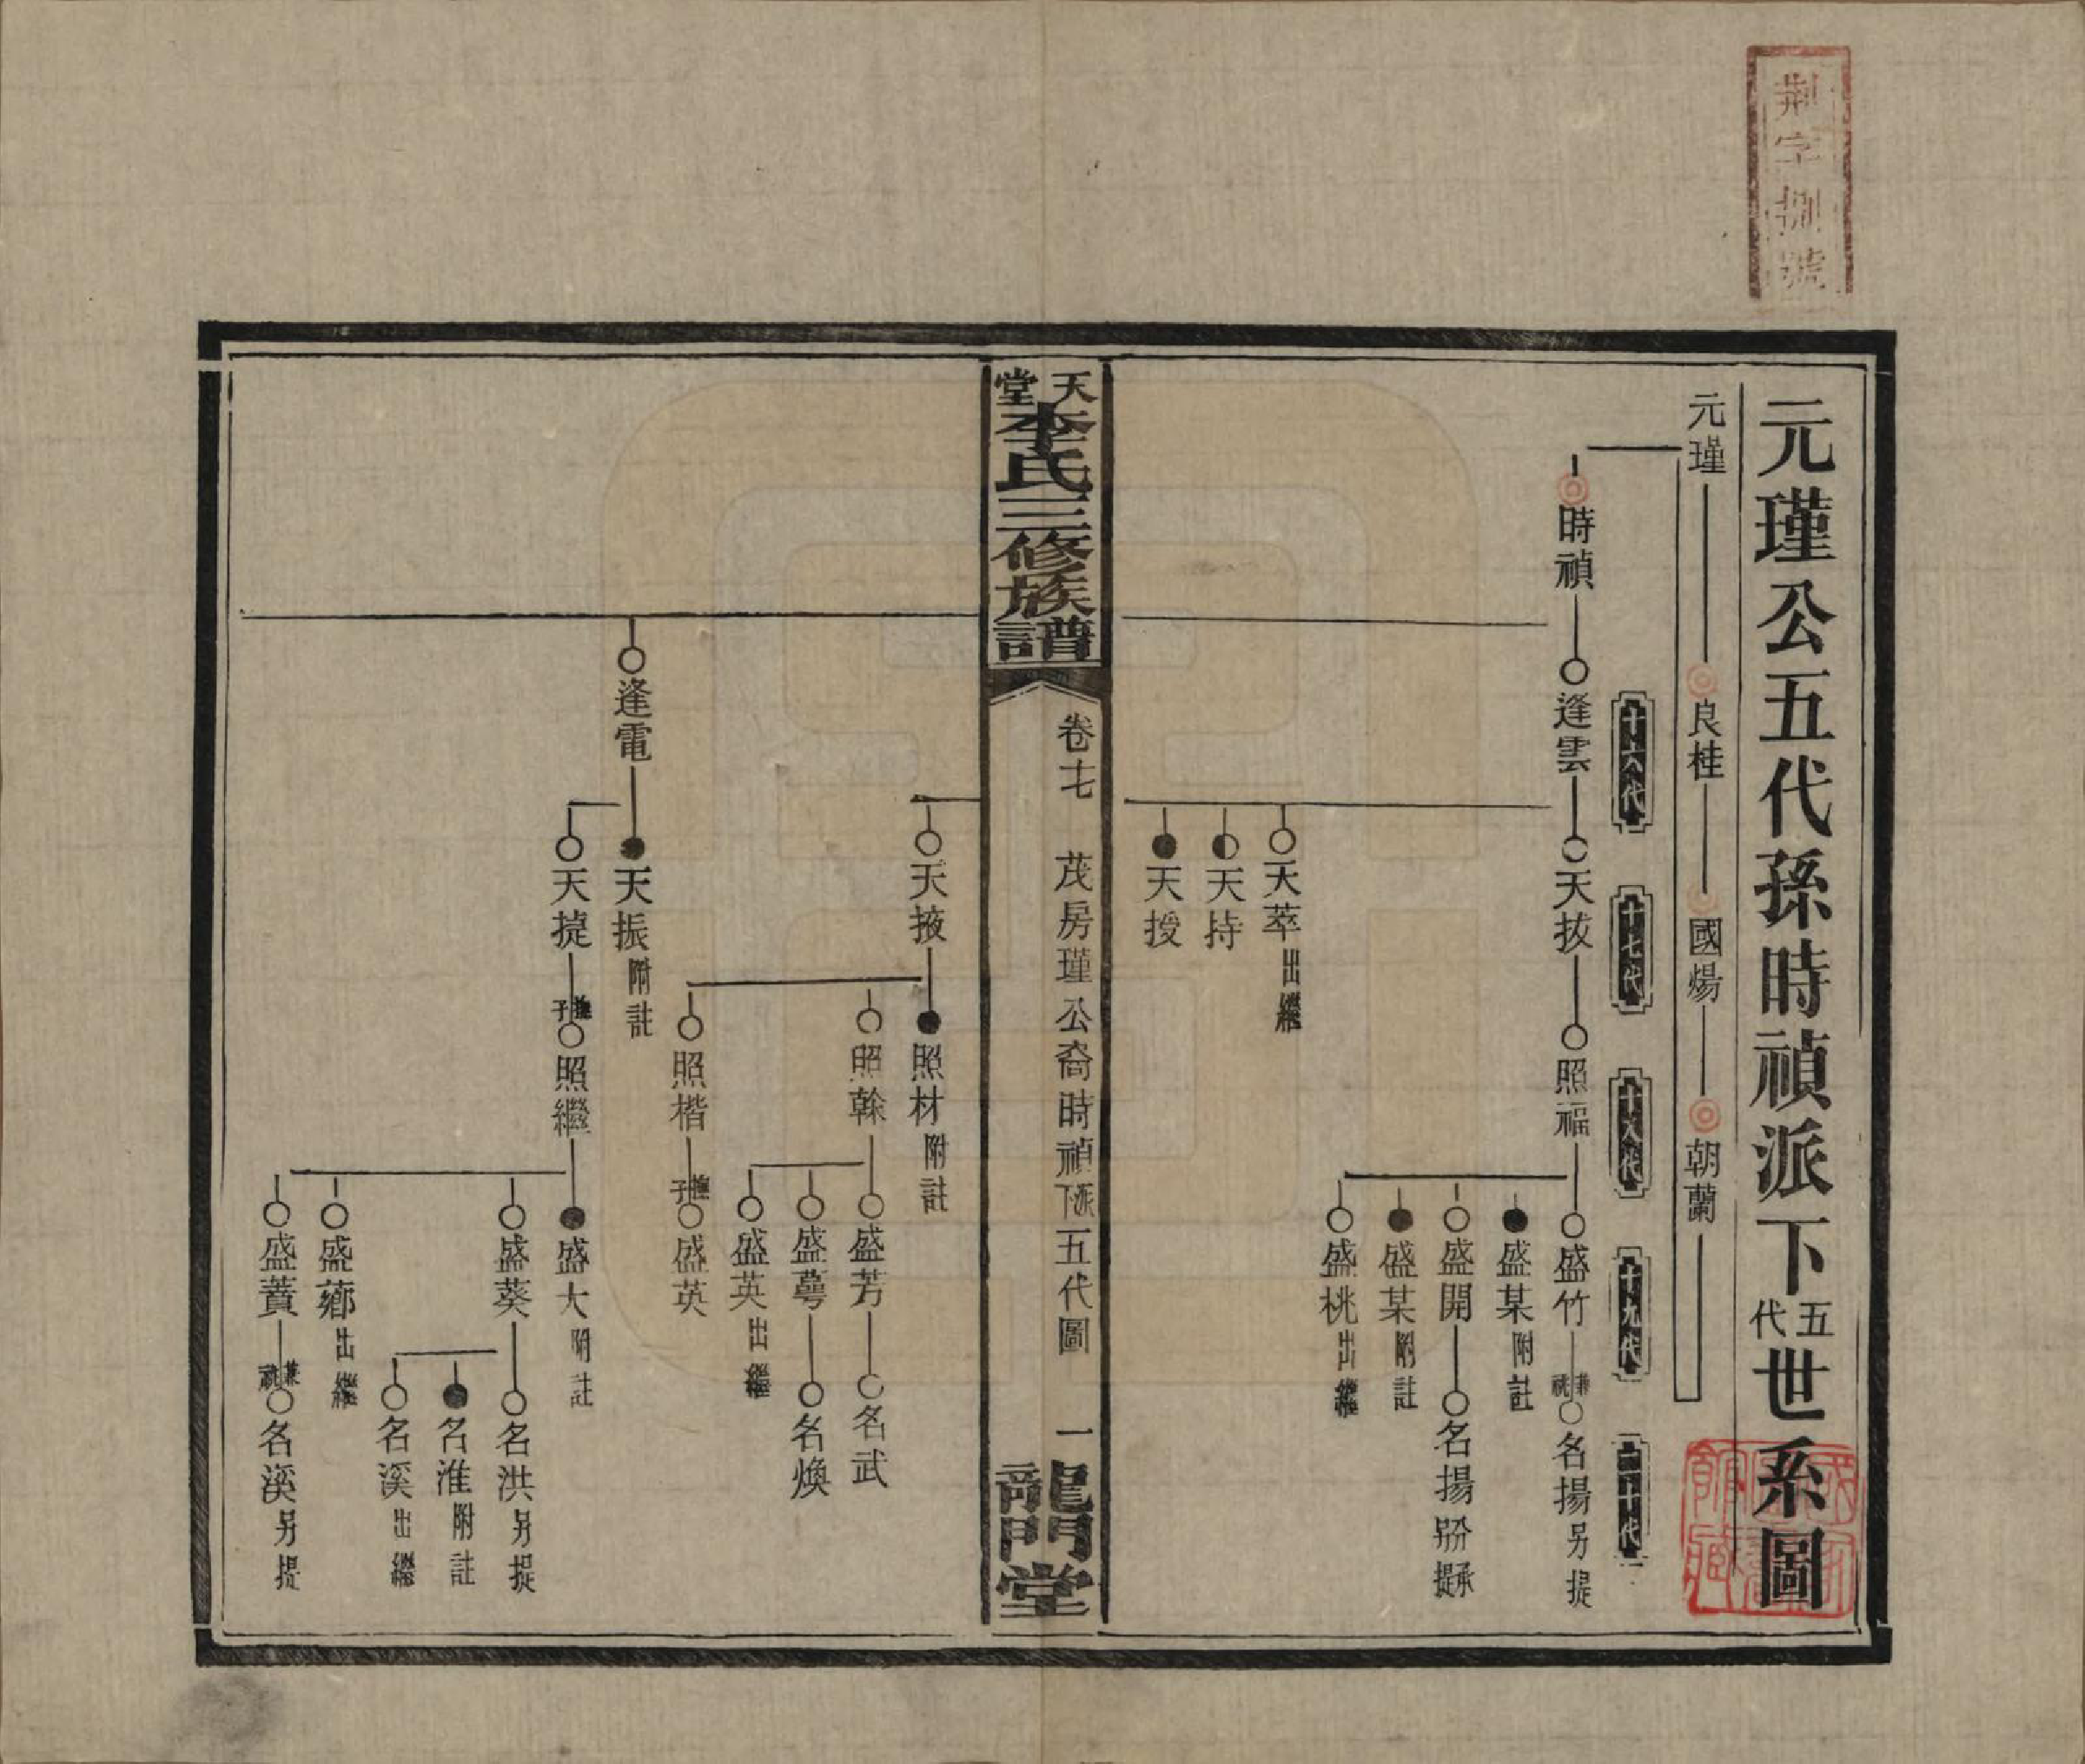 荆字捌號
元瑾公五代孫時禎派下五代世系圖
元瑾 良桂 國煬 朝蘭
十六代 十七代 十八代 十九代 二十代
時禎 逢雲 天拔 照福 盛竹 兼祧 名揚 另提
盛某 附註
盛開 名揚 另分提承
盛某 附註
盛桃 出繼
天萃 出繼
天持
天授
天堂李氏三修族譜 卷十七 茂房瑾公裔時禎派下五代圖 一 龍門堂
天掖 照材 附註
照榦 盛芳 名武
盛萼 名煥
盛英 出繼
照楷 撫子 盛英
逢電 天振 附註
天㨗 撫子 照繼 盛大 附註
盛葵 名洪 另提
名淮 附註
名溪 出繼
盛薌 出繼
盛蕡 兼祧 名溪 另提